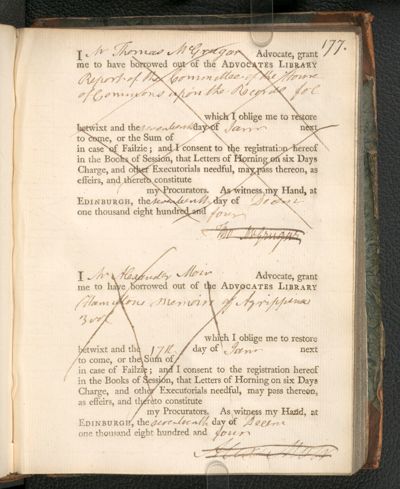 177.
I Mr Thomas McGrugar Advocate, grant
me to have borrowed out of the ADVOCATES LIBRARY
Report of the Committee of the House
of Commons upon the Records fol
which I oblige me to restore
betwixt and the seventeenth day of Janry next
to come, or the Sum of
in case of Failzie; and I consent to the registration hereof
in the Books of Session, that Letters of Horning on six Days
Charge, and other Executorials needful, may pass thereon, as
effeirs, and thereto constitute
my Procurators. As witness my Hand, at
EDINBURGH, the seventeenth day of Decem
one thousand eight hundred and four
Tho McGrugar
I Mr Alexander Moir Advocate, grant
me to have borrowed out of the ADVOCATES LIBRARY
Hamiltons memoirs of Agrippina
3 vol
which I oblige me to restore
betwixt and the 17th day of Janr next
to come, or the Sum of
in case of Failzie; and I consent to the registration hereof
in the Books of Session, that Letters of Horning on six Days
Charge, and other Executorials needful, may pass thereon,
as effeirs, and thereto constitute
my Procurators. As witness my Hand, at
EDINBURGH, the seventeenth day of Decem
one thousand eight hundred and four